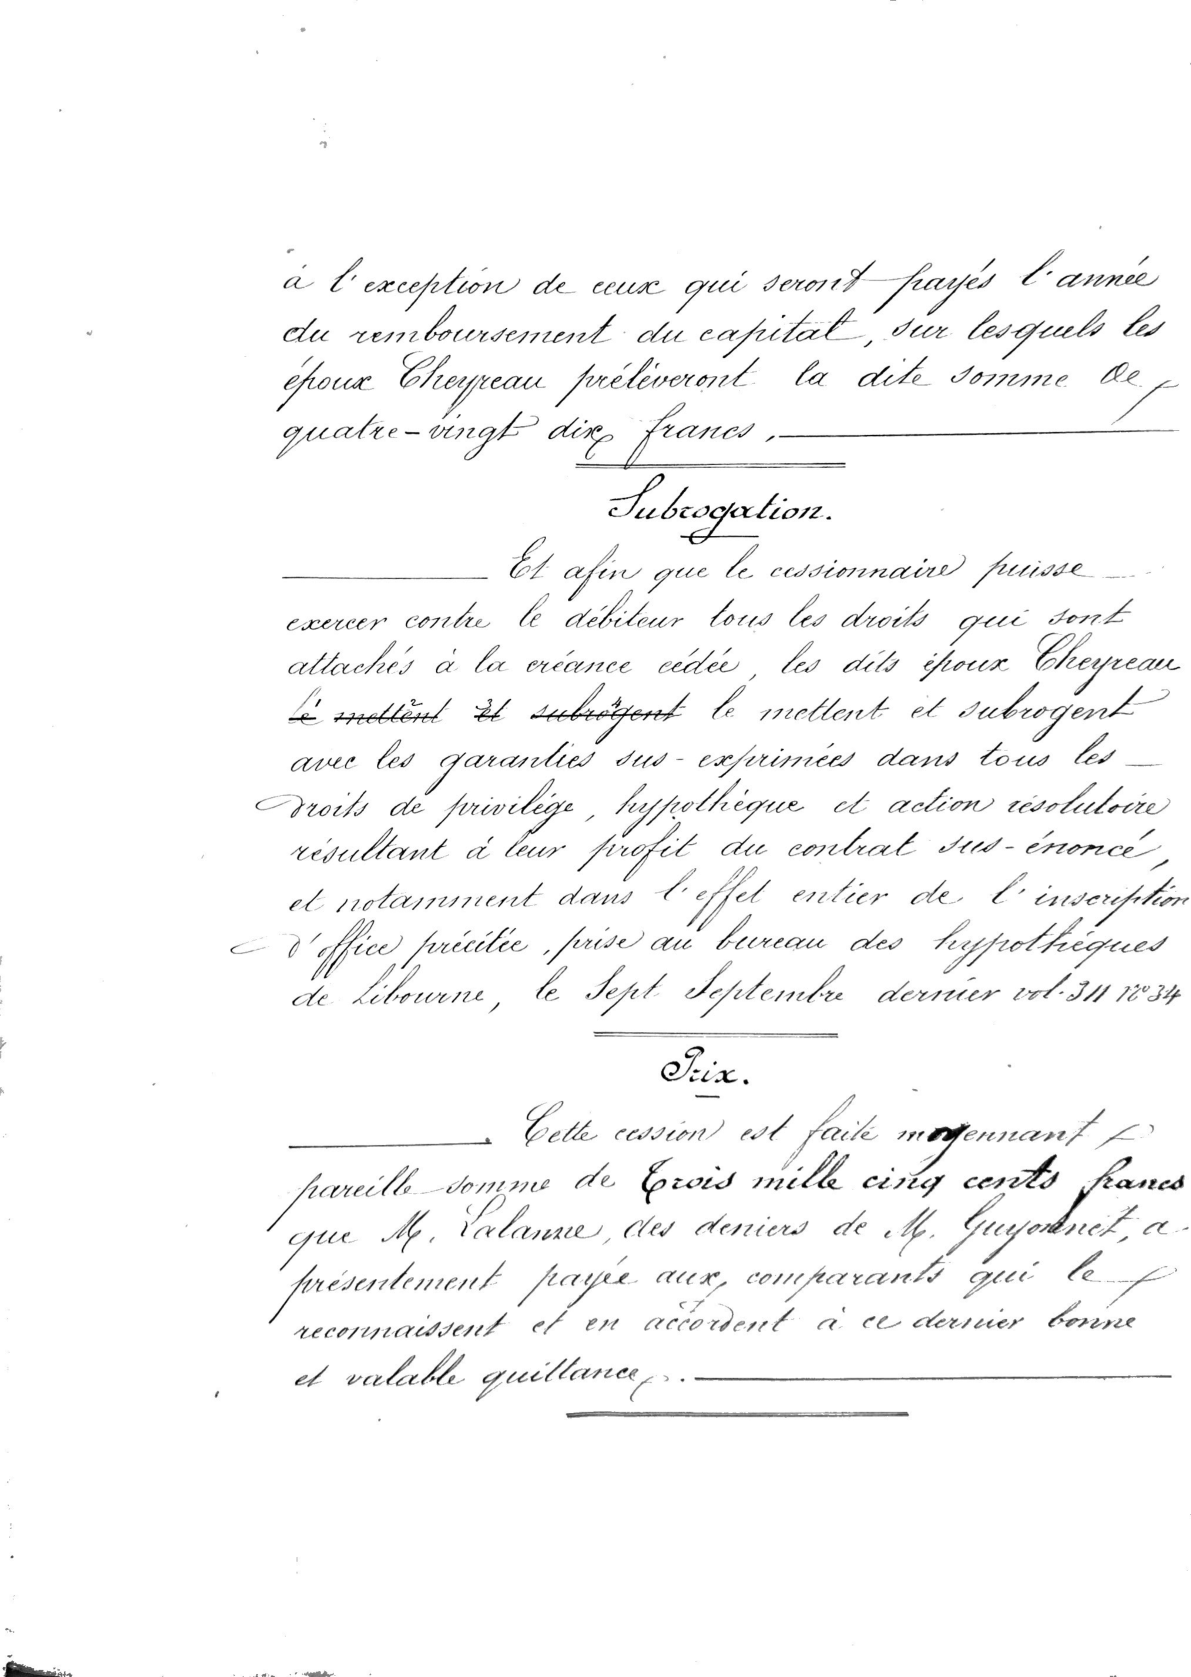 à l'exception de ceux qui seront payés l'année
du remboursement du capital, sur lesquels les
époux Cheyreau prélèveront la dite somme de
quatre-vingt dix francs.
Subrogation.
Et afin que le cessionnaire puisse
exercer contre le débiteur tous les droits qui sont
attachés à la créance cédée, les dits époux Cheyreau
le mettent et subrogent le mettent et subrogent
avec les garanties sus-exprimées dans tous les
droits de privilège, hypothèque et action résolutoire
résultant à leur profit du contrat sus-énoncé,
et notamment dans l'effet entier de l'inscription
d'office précitée, prise au bureau des hypothèques
de Libourne, le Sept Septembre dernier vol. 311 n° 34
Prix.
Cette cession est faite moyennant
pareille somme de Trois mille cinq cents francs
que M. Lalanne, des deniers de M. Guyonnet, a
présentement payée aux comparants qui le
reconnaissent et en accordent à ce dernier bonne
et valable quittance.